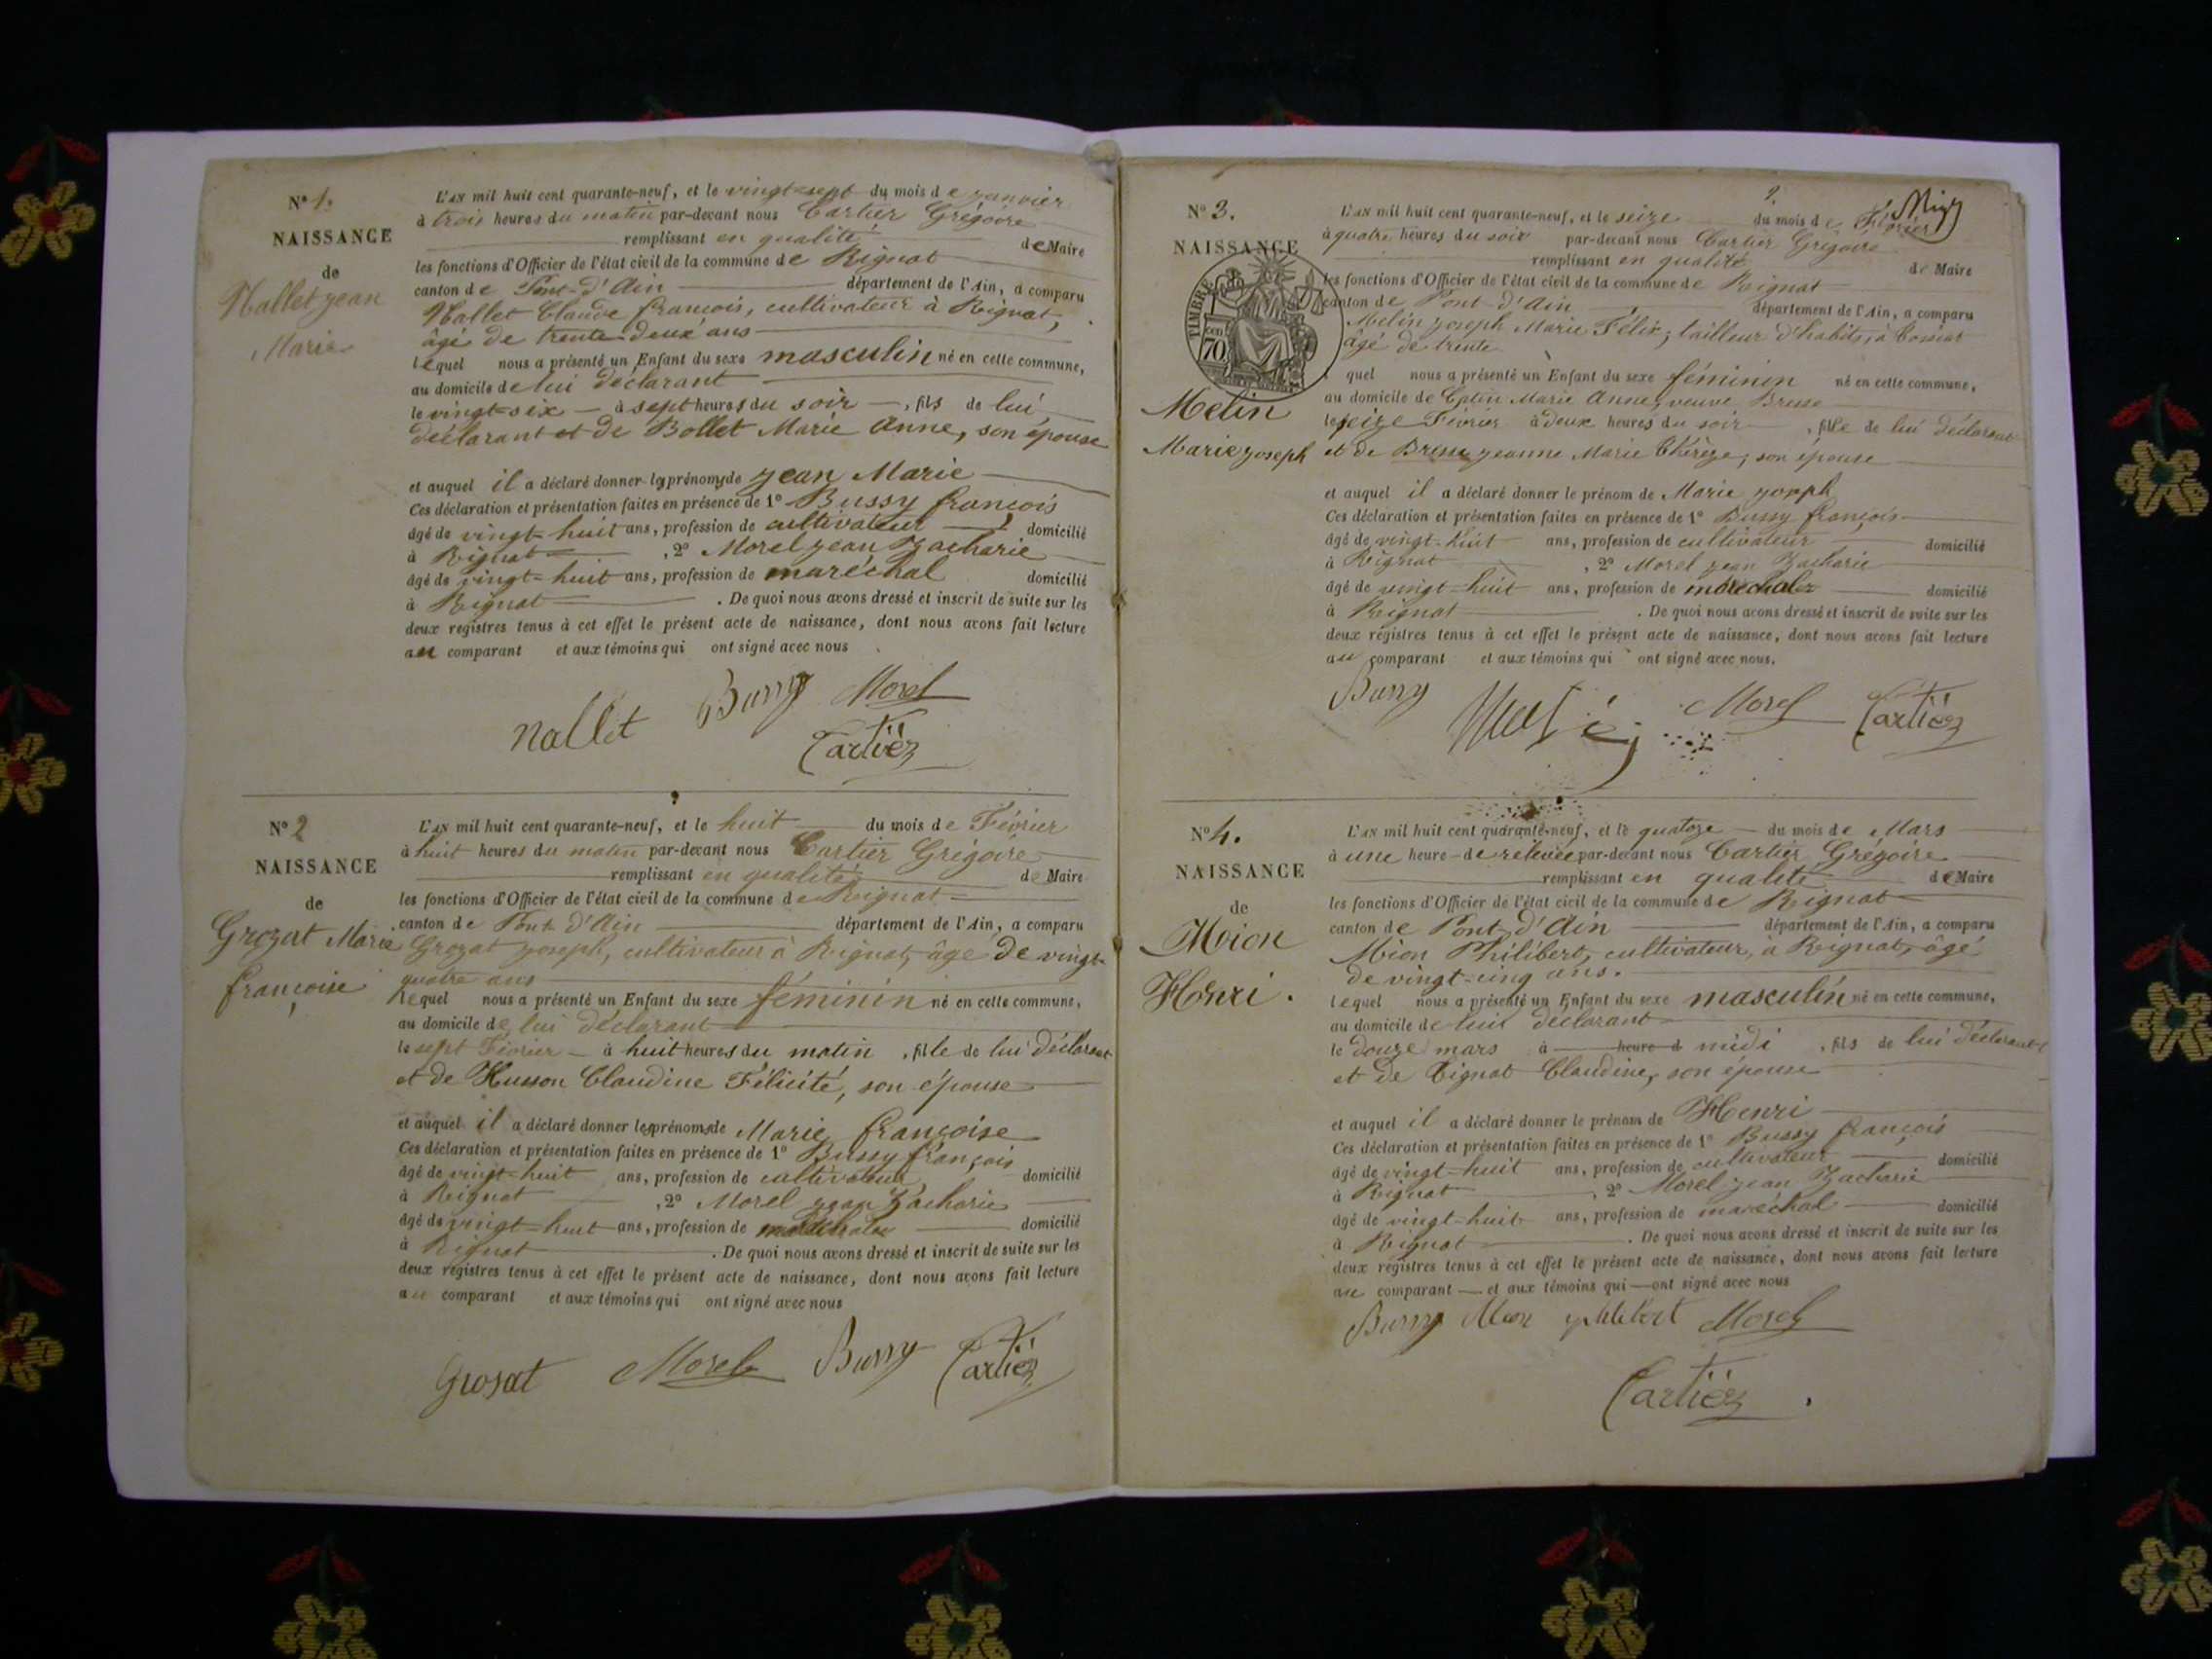 N° 1.
NAISSANCE
de
Nallet jean
Marie
L'AN mil huit cent quarante-neuf, et le vingt-sept du mois de janvier
à trois heures du matin par-devant nous Cartier Grégoire
remplissant en qualité de Maire
les fonctions d'Officier de l'état civil de la commune de Rignat
canton de Pont-d'Ain département de l'Ain, a comparu
Nallet Claude françois, cultivateur à Rignat,
âgé de trente deux ans
lequel nous a présenté un Enfant du sexe masculin né en cette commune,
au domicile de lui déclarant
le vingt-six à sept heures du soir, fils de lui
déclarant et de Bollet Marie Anne, son épouse
et auquel il a déclaré donner les prénoms de jean Marie
Ces déclaration et présentation faites en présence de 1° Bussy françois
âgé de vingt-huit ans, profession de cultivateur domicilié
à Rignat, 2° Morel jean Zacharie
âgé de vingt-huit ans, profession de maréchal domicilié
à Rignat. De quoi nous avons dressé et inscrit de suite sur les
deux registres tenus à cet effet le présent acte de naissance, dont nous avons fait lecture
au comparant et aux témoins qui ont signé avec nous
Nallet Bussy Morel
Cartier
N° 2
NAISSANCE
de
Grozat Marie
françoise
L'AN mil huit cent quarante-neuf, et le huit du mois de Février
à huit heures du matin par-devant nous Cartier Grégoire
remplissant en qualité de Maire
les fonctions d'Officier de l'état civil de la commune de Rignat
canton de Pont-d'Ain département de l'Ain, a comparu
Grozat joseph, cultivateur à Rignat, âgé de vingt-
quatre ans
lequel nous a présenté un Enfant du sexe féminin né en cette commune,
au domicile de lui déclarant
le sept Février à huit heures du matin, fille de lui déclarant
et de Husson Claudine Félicité, son épouse
et auquel il a déclaré donner les prénoms de Marie françoise
Ces déclaration et présentation faites en présence de 1° Bussy françois
âgé de vingt-huit ans, profession de cultivateur domicilié
à Rignat, 2° Morel jean Zacharie
âgé de vingt-huit ans, profession de domicilié
à Rignat. De quoi nous avons dressé et inscrit de suite sur les
deux registres tenus à cet effet le présent acte de naissance, dont nous avons fait lecture
au comparant et aux témoins qui ont signé avec nous
Grosat Morel Bussy Cartier
2.
N° 3.
NAISSANCE
TIMBRE
70
Melin
Marie joseph
L'AN mil huit cent quarante-neuf, et le seize du mois de Février
à quatre heures du soir par-devant nous Cartier Grégoire
remplissant en qualité de Maire
les fonctions d'Officier de l'état civil de la commune de Rignat
canton de Pont-d'Ain département de l'Ain, a comparu
Melin joseph Marie Félix, tailleur d'habits, à
âgé de trente
quel nous a présenté un Enfant du sexe féminin né en cette commune,
au domicile de Marie Anne, veuve
le seize Février à deux heures du soir, fille de lui déclarant
et de jeanne Marie Thérèze, son épouse
et auquel il a déclaré donner le prénom de Marie joseph
Ces déclaration et présentation faites en présence de 1° Bussy françois
âgé de vingt-huit ans, profession de cultivateur domicilié
à Rignat, 2° Morel jean Zacharie
âgé de vingt-huit ans, profession de domicilié
à Rignat. De quoi nous avons dressé et inscrit de suite sur les
deux registres tenus à cet effet le présent acte de naissance, dont nous avons fait lecture
au comparant et aux témoins qui ont signé avec nous.
Bussy Morel Cartier
N° 4.
NAISSANCE
de
Moion
Henri.
L'AN mil huit cent quarante-neuf, et le quatoze du mois de Mars
à une heure de relevée par-devant nous Cartier Grégoire
remplissant en qualité de Maire
les fonctions d'Officier de l'état civil de la commune de Rignat
canton de Pont-d'Ain département de l'Ain, a comparu
Mion Philibert, cultivateur, à Rignat, âgé
de vingt-cinq ans.
lequel nous a présenté un Enfant du sexe masculin né en cette commune,
au domicile de lui déclarant
le douze mars à heure d midi, fils de lui déclarant
et de Tignat Claudine, son épouse
et auquel il a déclaré donner le prénom de Henri
Ces déclaration et présentation faites en présence de 1° Bussy françois
âgé de vingt-huit ans, profession de cultivateur domicilié
à Rignat, 2° Morel jean Zacharie
âgé de vingt-huit ans, profession de maréchal domicilié
à Rignat. De quoi nous avons dressé et inscrit de suite sur les
deux registres tenus à cet effet le présent acte de naissance, dont nous avons fait lecture
au comparant et aux témoins qui ont signé avec nous
Bussy Mion philibert Morel
Cartier